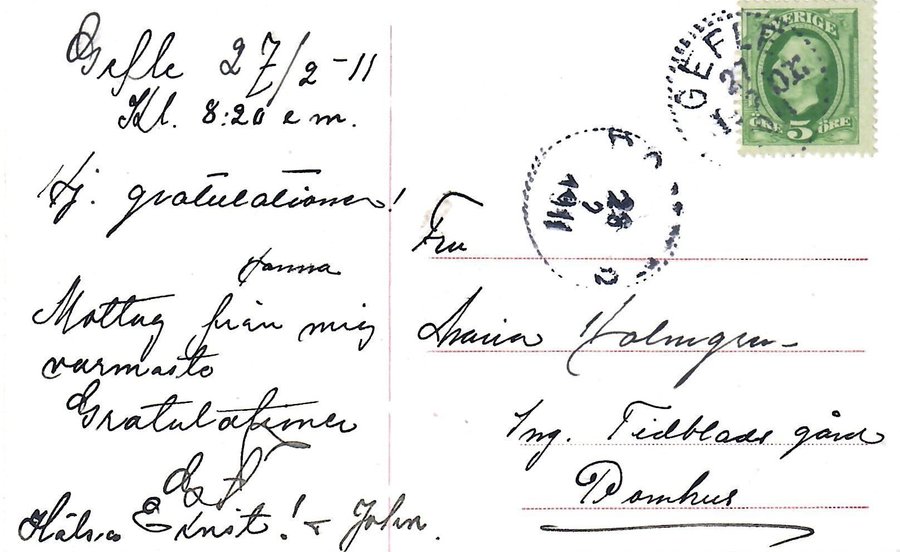 Gefle 27/2-11
Kl. 8:20 e m.
Hj. gratulationer!
Hanna
Mottag från mig
varmaste
Gratulationer
Hälsa Ernst! & John.
SVERIGE
5
ÖRE ÖRE
GEFLE
27
28
2
1911
Fru
Maria Holmgren
Ing. Tidblads gård
Bomhus